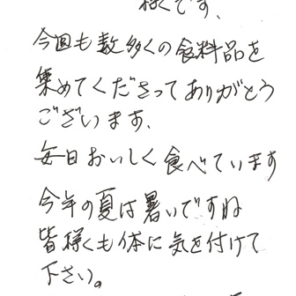 様です、
今回も数多くの食料品を
集めてくださってありがとう
ございます、
毎日おいしく食べています
今年の夏は暑いですね
皆様くも体に気を付けて
下さい。